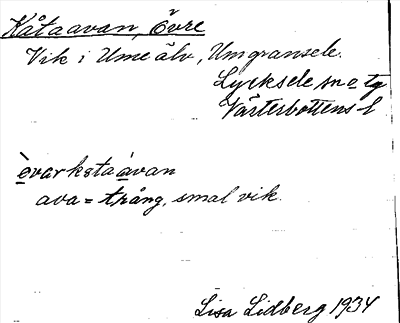 Kåtaavan, Övre
Vik i Ume älv, Umgransele.
Lycksele sn o tg
Västerbottens l
èvarkstaávan
ava = trång, smal vik.
Lisa Lidberg 1934